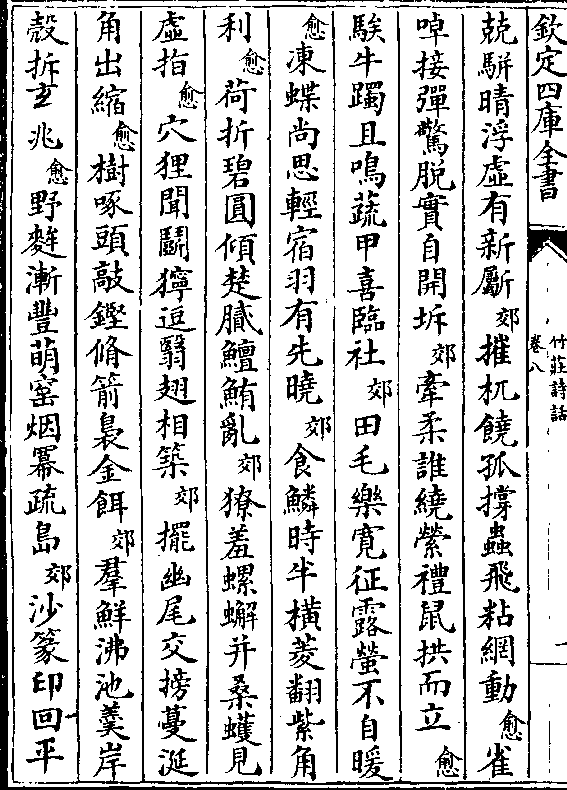 欽定四庫全書
竹莊詩話
卷八
兢駢晴浮虛有新斸郊摧杌饒孤撐蟲飛粘網動愈雀
啅接彈驚脫實自開坼郊牽柔誰繞縈禮鼠拱而立愈
騃牛躅且鳴蔬甲喜臨社郊田毛樂寛征露螢不自暖
愈凍蝶尚思輕宿羽有先曉郊食鱗時半横菱翻紫角
利愈荷折碧圓傾楚膩鱣鮪亂郊獠羞螺蠏并桑蠖見
虛指愈穴狸聞鬭獰逗翳翅相築郊擺幽尾交搒蔓涎
角出縮愈樹啄頭敲鏗脩箭裊金餌郊羣鮮沸池羹岸
殼拆玄兆愈野麰漸豐萌窑烟羃疏島郊沙篆印回平